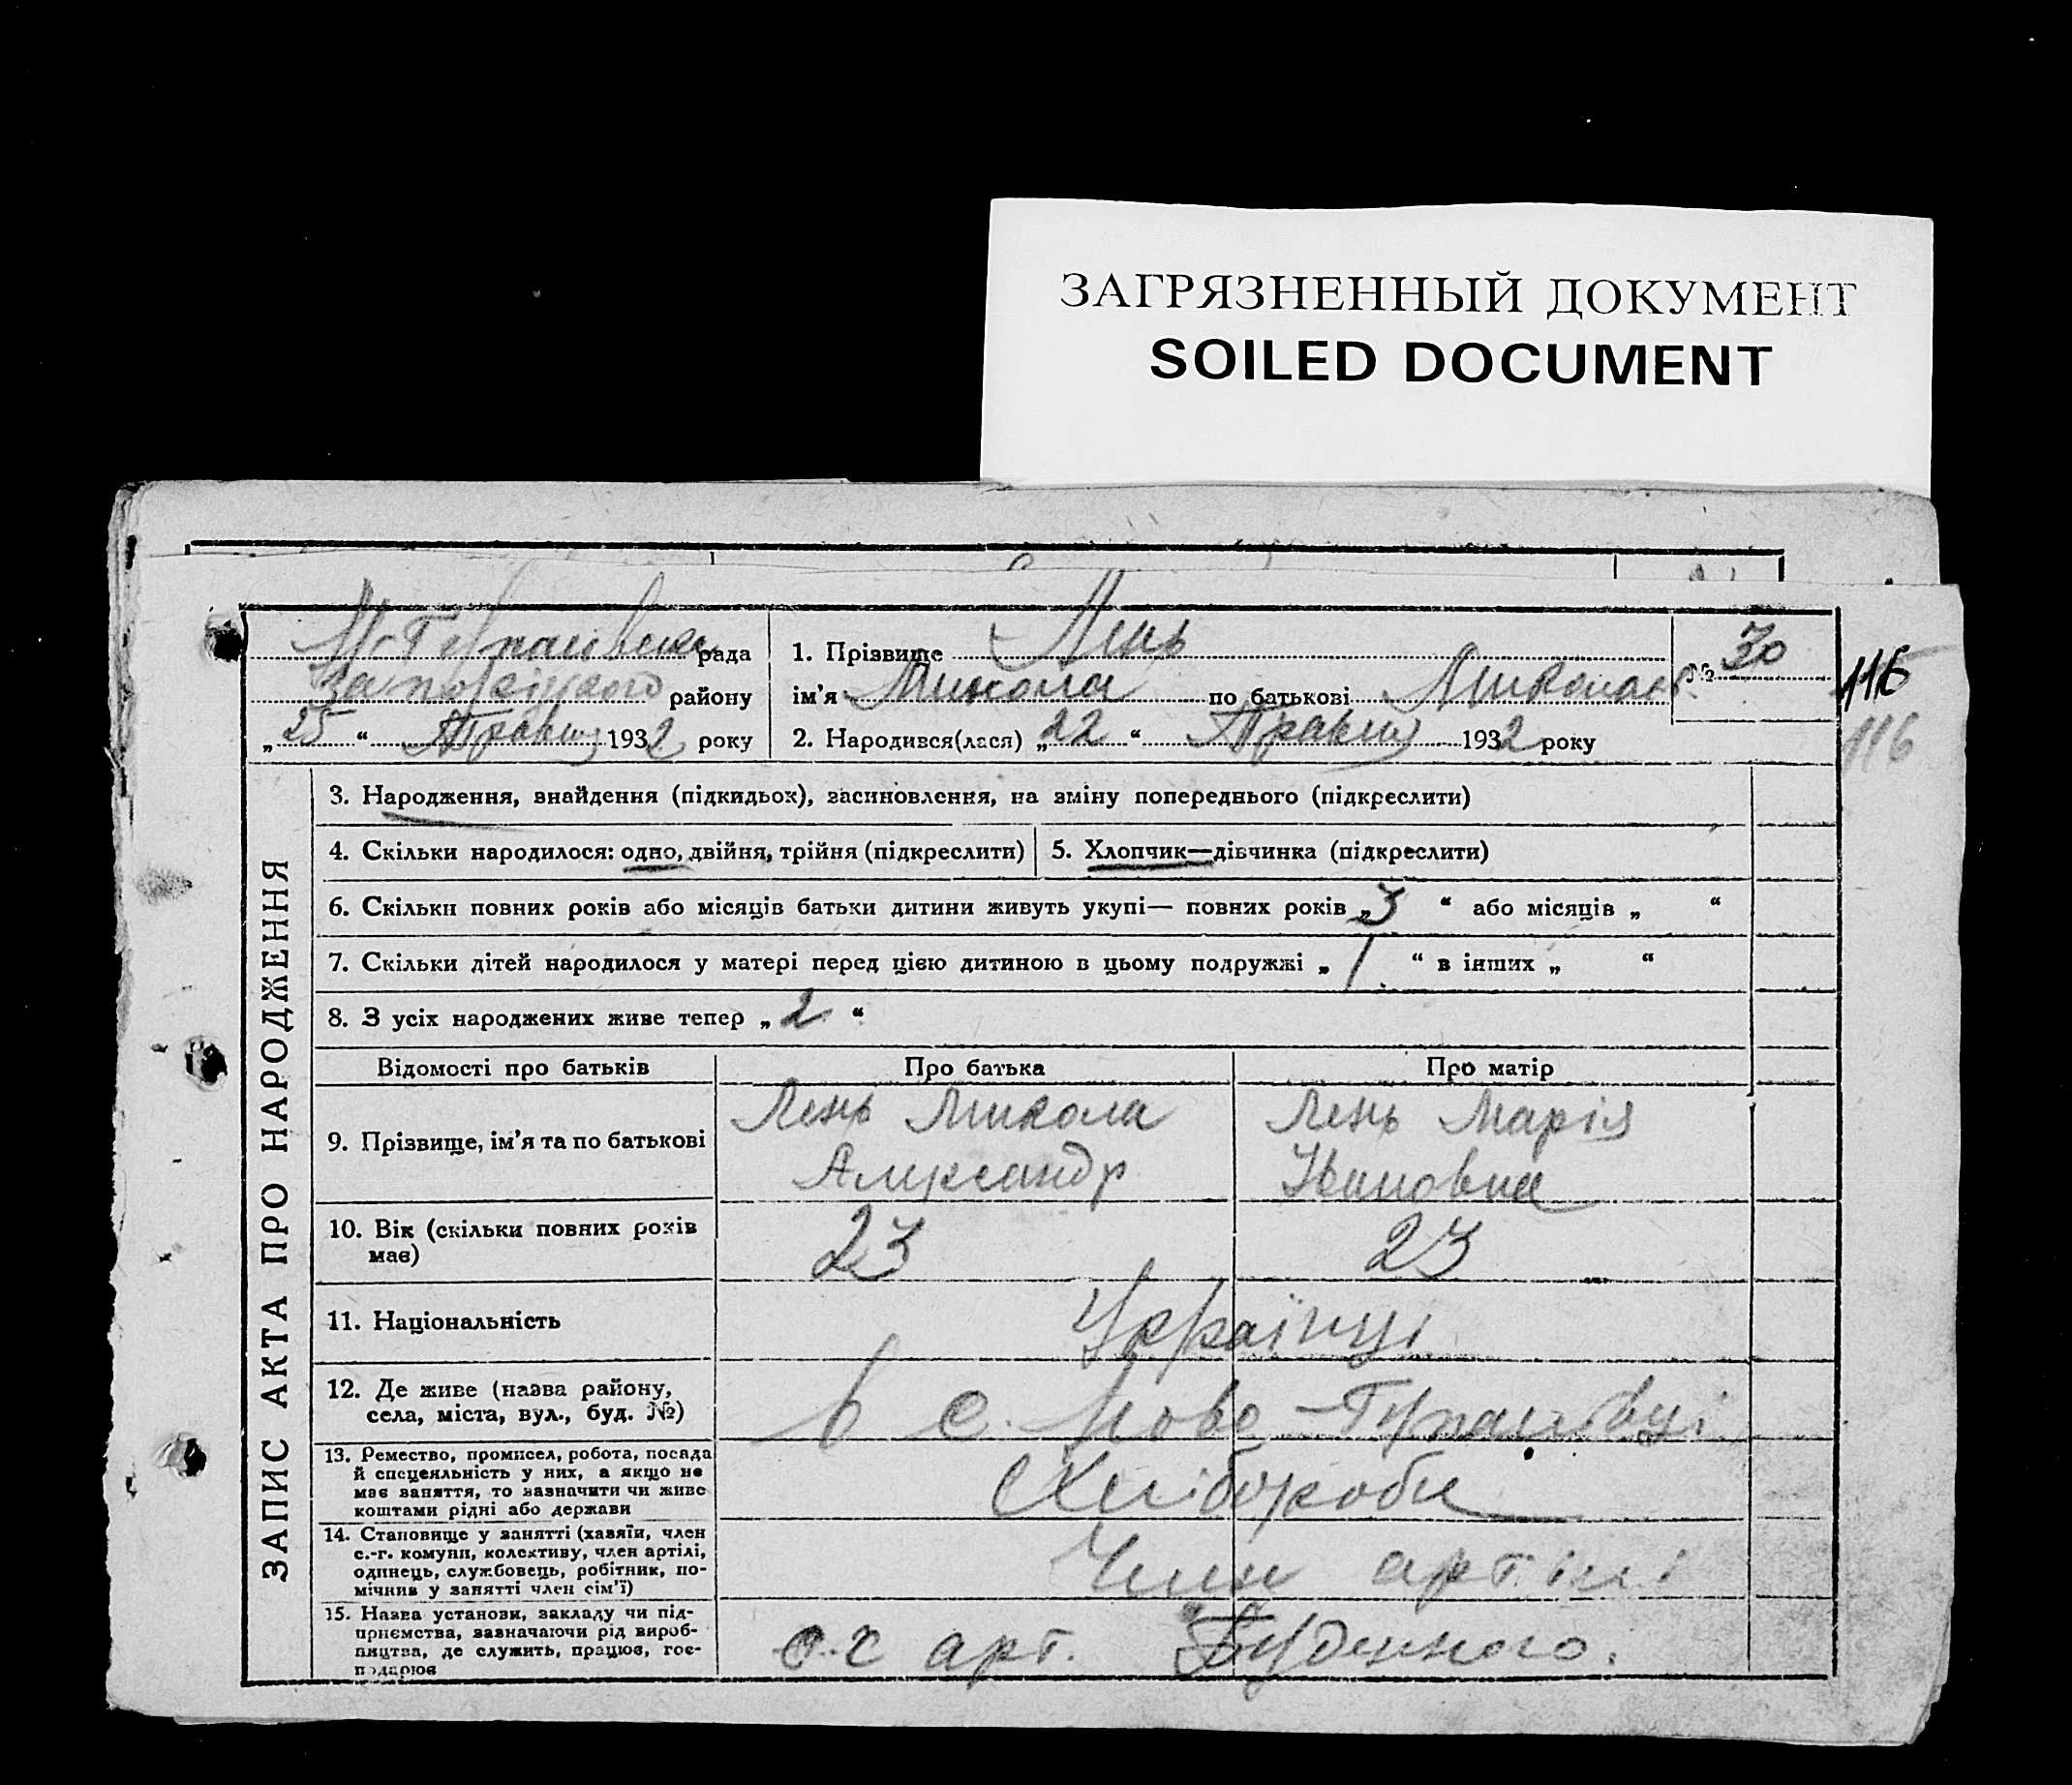 ЗАГРЯЗНЕННЫЙ ДОКУМЕНТ
SOILED DOCUMENT
рада
району
„25“ Травня 1932 року
1. Прізвище Лень
ім'я Микола по батькові Миколаєв.
№ 30
2. Народився(лася) „22“ Травня 1932 року
116
116
ЗАПИС АКТА ПРО НАРОДЖЕННЯ
3. Народження, знайдення (підкидьок), засиновлення, на зміну попереднього (підкреслити)
4. Скільки народилося: одно, двійня, трійня (підкреслити)
5. Хлопчик—дівчинка (підкреслити)
6. Скільки повних років або місяців батьки дитини живуть укупі— повних років „3“ або місяців „ “
7. Скільки дітей народилося у матері перед цією дитиною в цьому подружжі „1“ в інших „ “
8. З усіх народжених живе тепер „2“
Відомості про батьків
Про батька
Про матір
9. Прізвище, ім'я та по батькові
Лень Микола
Александр
Лень Марія
Ивановна
10. Вік (скільки повних років
має)
23
23
11. Національність
Українці
12. Де живе (назва району,
села, міста, вул., буд. №)
в с. Ново-
13. Ремество, промисел, робота, посада
й спецеяльність у них, а якщо не
має заняття, то зазначити чи живе
коштами рідні або держави
Хлібороби
14. Становище у занятті (хазяїн, член
с.-г. комуни, колективу, член артілі,
одинець, службовець, робітник, по-
мічник у занятті член сім'ї)
Член артілі
15. Назва установи, закладу чи під-
приємства, зазначаючи рід вироб-
ництва, де служить, працює, гос-
подарює
с.г арт. Буденного.